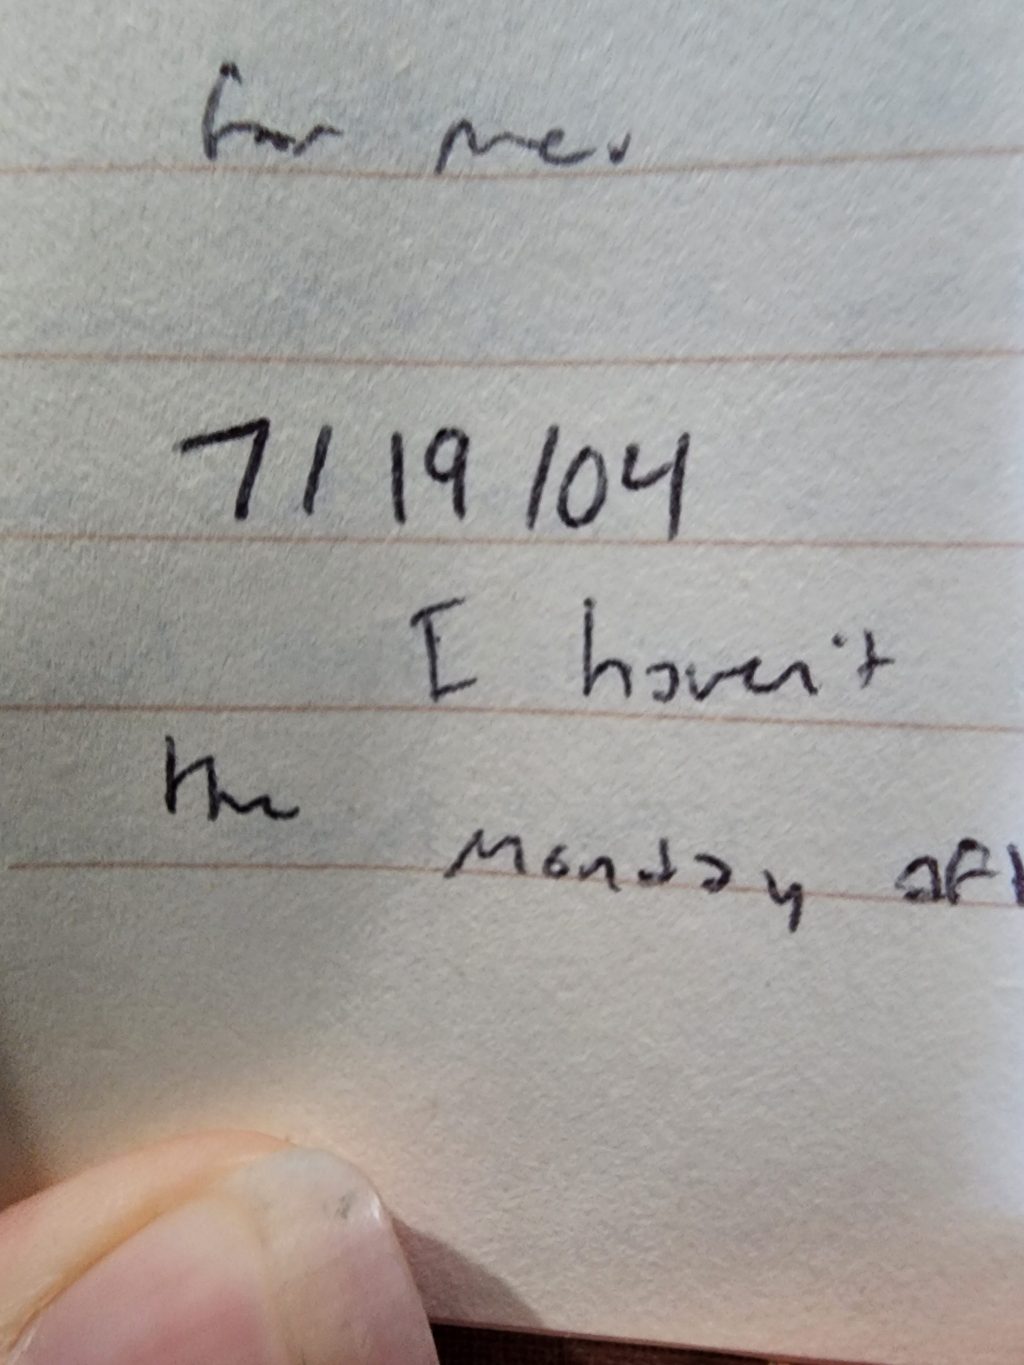 for me.
7/19/04
I haven't
the
Monday aft